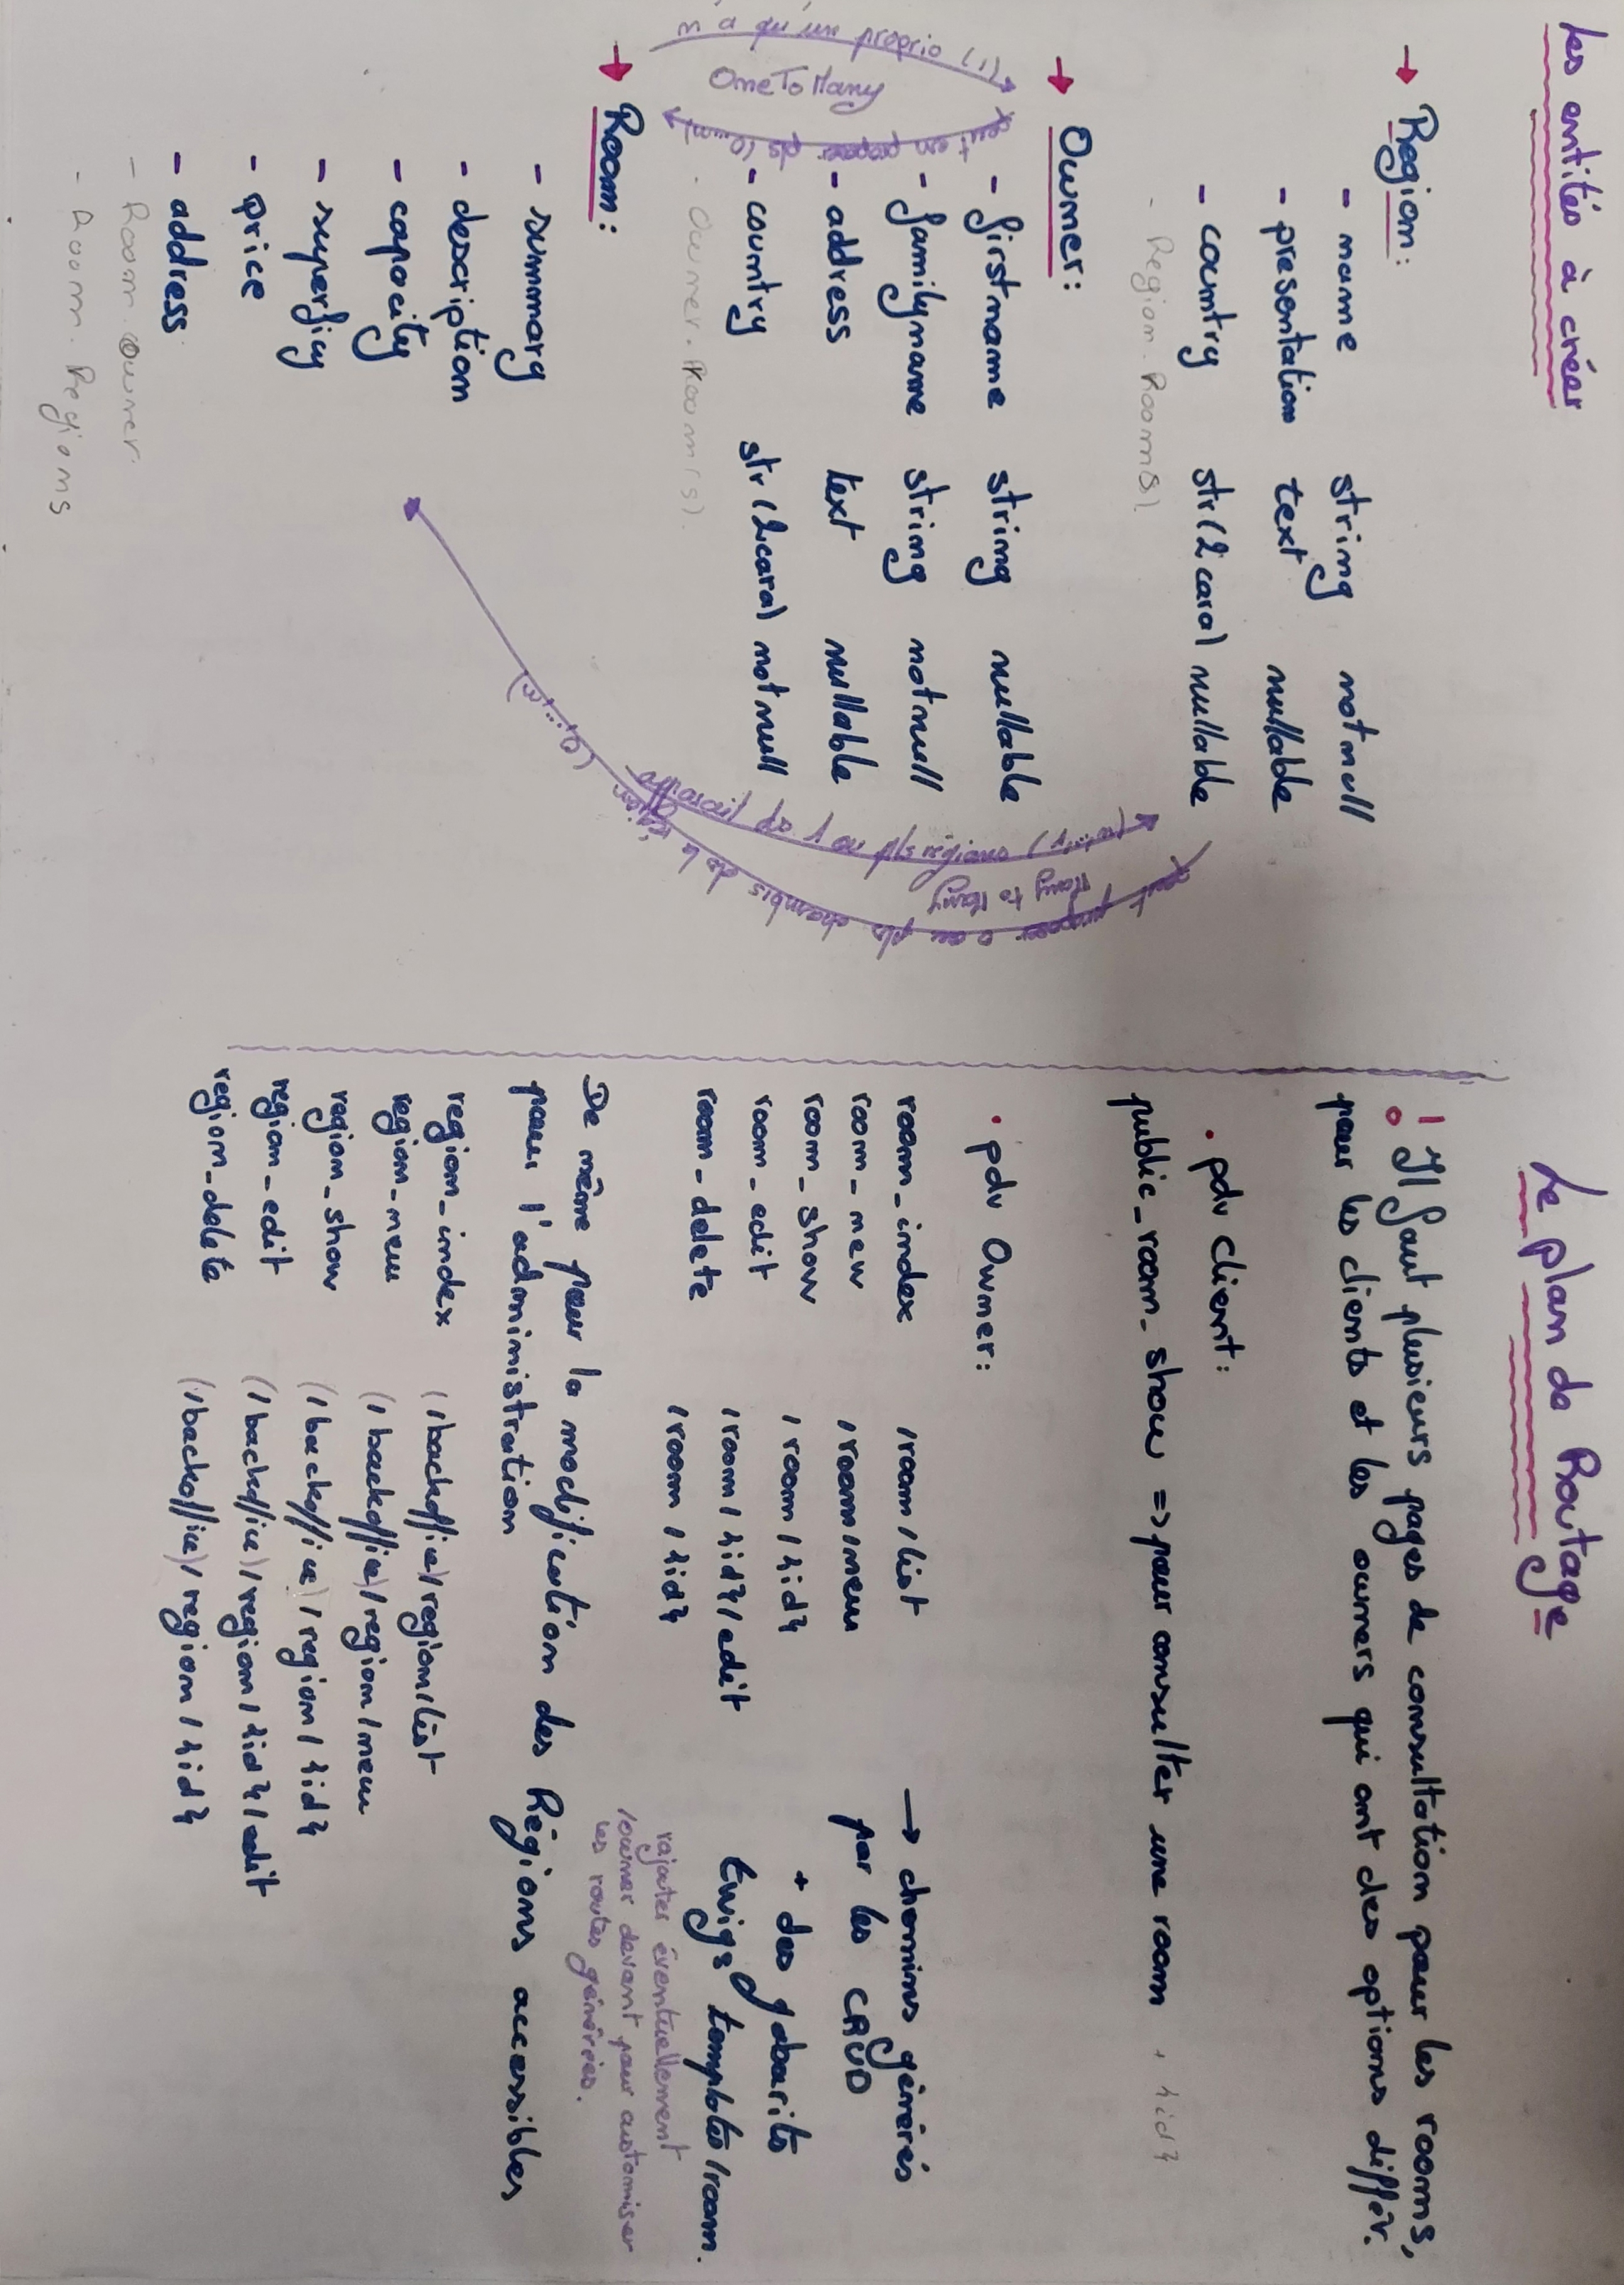 Les entités à créer
→ Region :
- name string notnull
- presentation text nullable
- country str(2cara) nullable
- Region.Room(s)
→ Owner :
- firstname string nullable
- familyname string notnull
- address text nullable
- country str(2cara) notnull
- Owner.Room(s).
n'a qu'un proprio (1)
OneToMany
peut en proposer pls
→ Room :
- summary
- description
- capacity
- superficy
- price
- address
- Room.Owner
- Room.Regions
ou pls régions (1...n)
Many to Many
peut proposer 0 ou pls chambres de la région
Le plan de Routage
! Il faut plusieurs pages de consultation pour les rooms,
pour les clients et les owners qui ont des options différ.
. pdv client :
public_room_show => pour consulter une room + {id}
. pdv Owner :
room_index /room/list → chemins générés
room_new /room/new par les CRUD
room_show /room/{id} + des gabarits
room_edit /room/{id}/edit Twigs templates/room.
room_delete /room/{id}
rajouter éventuellement
/owner devant pour customiser
les routes générées.
De même pour la modification des Régions accessibles
pour l'administration
region_index (/backoffice)/region/list
region_new (/backoffice)/region/new
region_show (/backoffice)/region/{id}
region_edit (/backoffice)/region/{id}/edit
region_delete (/backoffice)/region/{id}